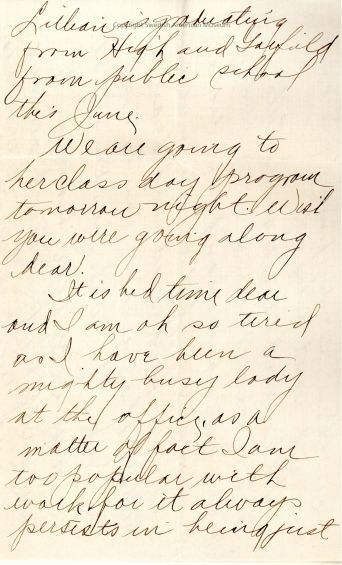 Lillian is graduating
Copyright Swedish American Museum
from High and Garfield
from public school
this June.
We are going to
her class day program
tomorrow night. Wish
you were going along
dear.
It is bed time dear
and I am oh so tired
as I have been a
mighty busy lady
at the office, as a
matter of fact I am
too popular with
work, for it always
persists in being just